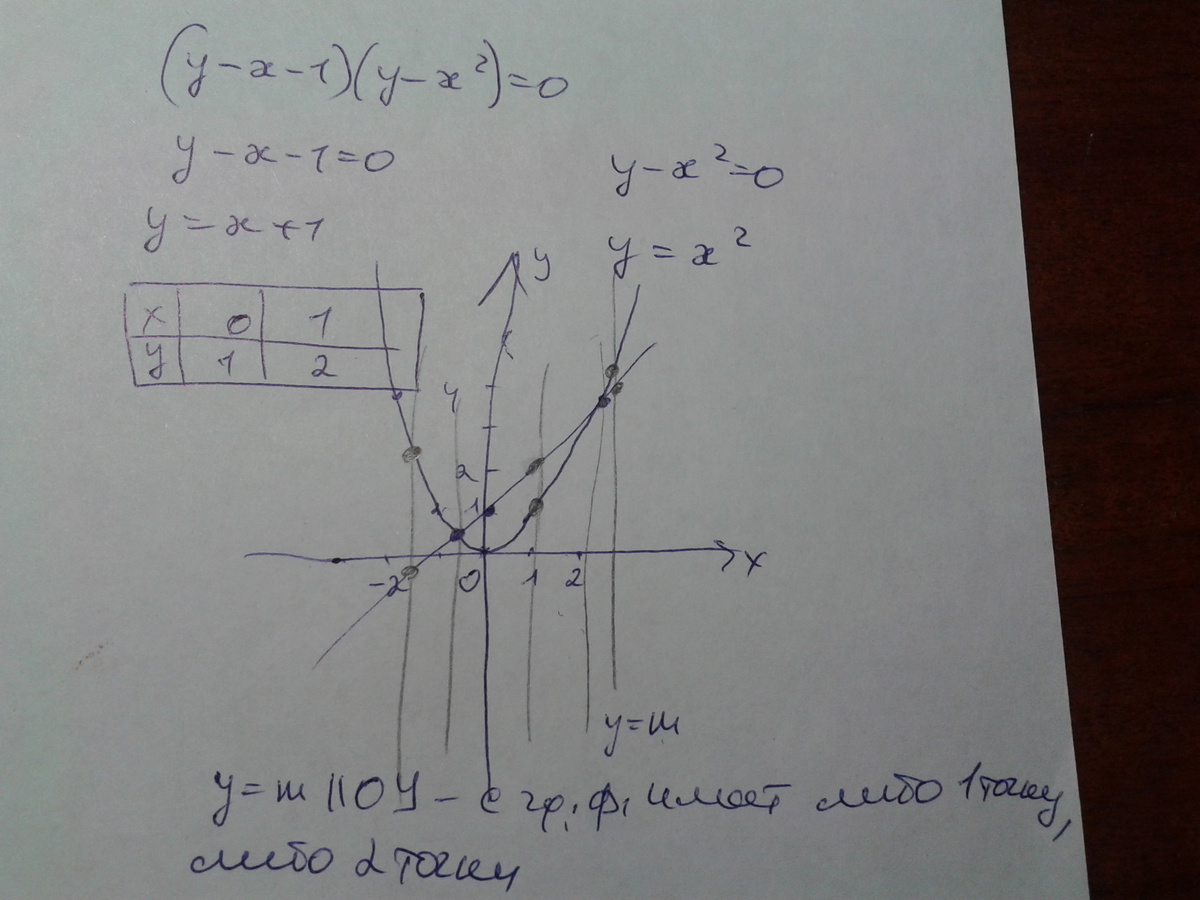 (y-x-1)(y-x²)=0
y-x-1=0
y-x²=0
y=x+1
y=x²
x 0 1
y 1 2
y
4
2
1
-2 0 1 2 x
y=m
y=m || OY - с гр. ф. имеет либо 1 точку,
либо 2 точки